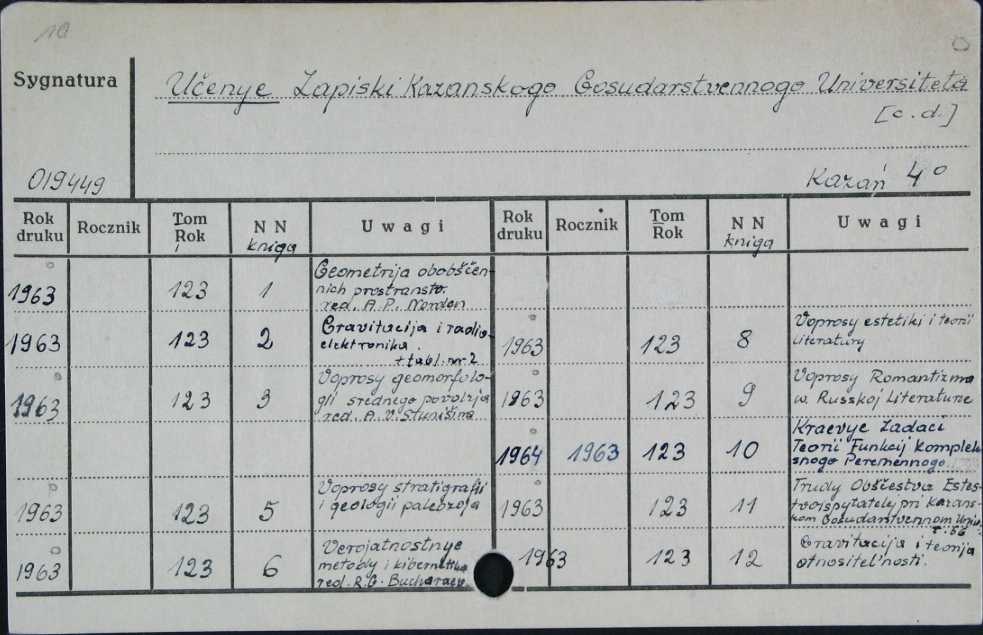 10
Sygnatura
Učenye Zapiski Kazanskogo Gosudarstvennogo Universiteta
[c.d.]
019449
Kazań 4°
Rok druku Rocznik Tom Rok N N kniga Uwagi Rok druku Rocznik Tom Rok N N kniga Uwagi
1963 123 1 Geometrija obobščen-
nich prostranstv.
red. A.P. Norden
1963 123 2 Gravitacija i radio-
elektronika.
+ tabl. nr 2
1963 123 3 Voprosy geomorfolo-
gii srednego povolžja
red. A.V.
1963 123 5 Voprosy stratigrafii
i geologii paleozoja
1963 123 6 Verojatnostnye
metody i kibernetika
red. R.G. Bucharaev
1963 123 8 Voprosy estetiki i teorii
literatury
1963 123 9 Voprosy Romantizma
w Russkoj Literature
1964 1963 123 10 Kraevye Zadaci
Teorii Funkcij Komplek-
snogo Peremennogo
1963 123 11 Trudy Obščestva Estes-
tvoispytatelej pri Kazans-
kom Gosudarstvennom Univ.
T. 56
1963 123 12 Gravitacija i teorija
otnositel'nosti.